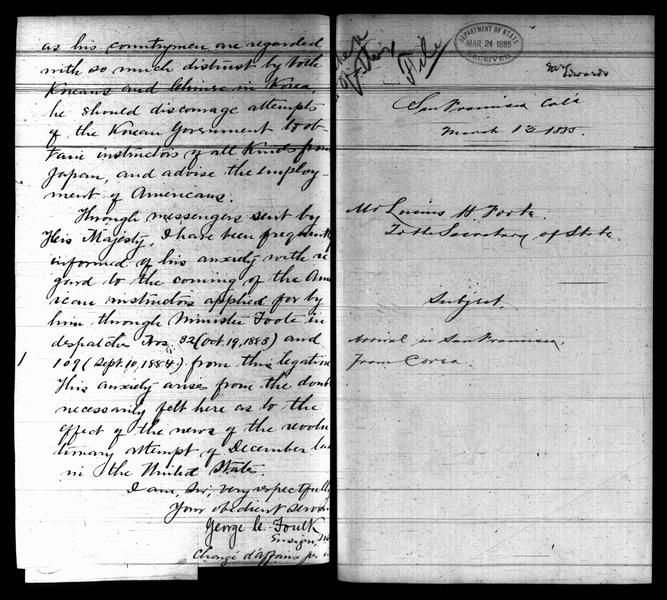 as his countrymen are regarded
with so much distrust by both
Koreans and Chinese in Korea,
he should discourage attempts
of the Korean Government to ob-
tain instructors of all kinds from
Japan, and advise the employ-
ment of Americans.
Through messengers sent by
His Majesty, I have been frequently
informed of his anxiety with re
gard to the coming of the Ame
rican instructors applied for by
him through Minister Foote in
despatches Nos. 32 (Oct. 19, 1883) and
109 (Sept. 10, 1884) from this legation
This anxiety arises from the doubt
necessarily felt here as to the
effect of the news of the revolu
tionary attempt of December last
in the United State.
I am, Sir, very respectfully
Your obedient servant
George C. Foulk
Ensign,
Chargé d'Affaires
File
DEPARTMENT OF STATE
MAR 24 1885
RECEIVED
Edwards
San Francisco Cal'a
March 13 1885.
Mr Lucius H Foote.
To the Secretary of State.
Subject.
Arrival in San Francisco,
from Corea.